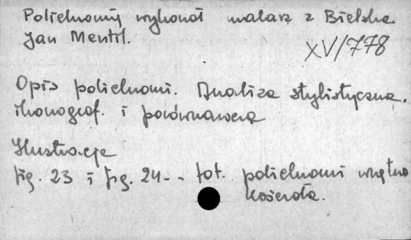 Polichromię wykonał malarz z Bielska
Jan Mentil.
XV/778
Opis polichromi. Analiza stylistyczna,
ikonograf. i porównawcza
Ilustracje
fig. 23 i fig. 24 - fot. polichromi wnętrza
kościoła.